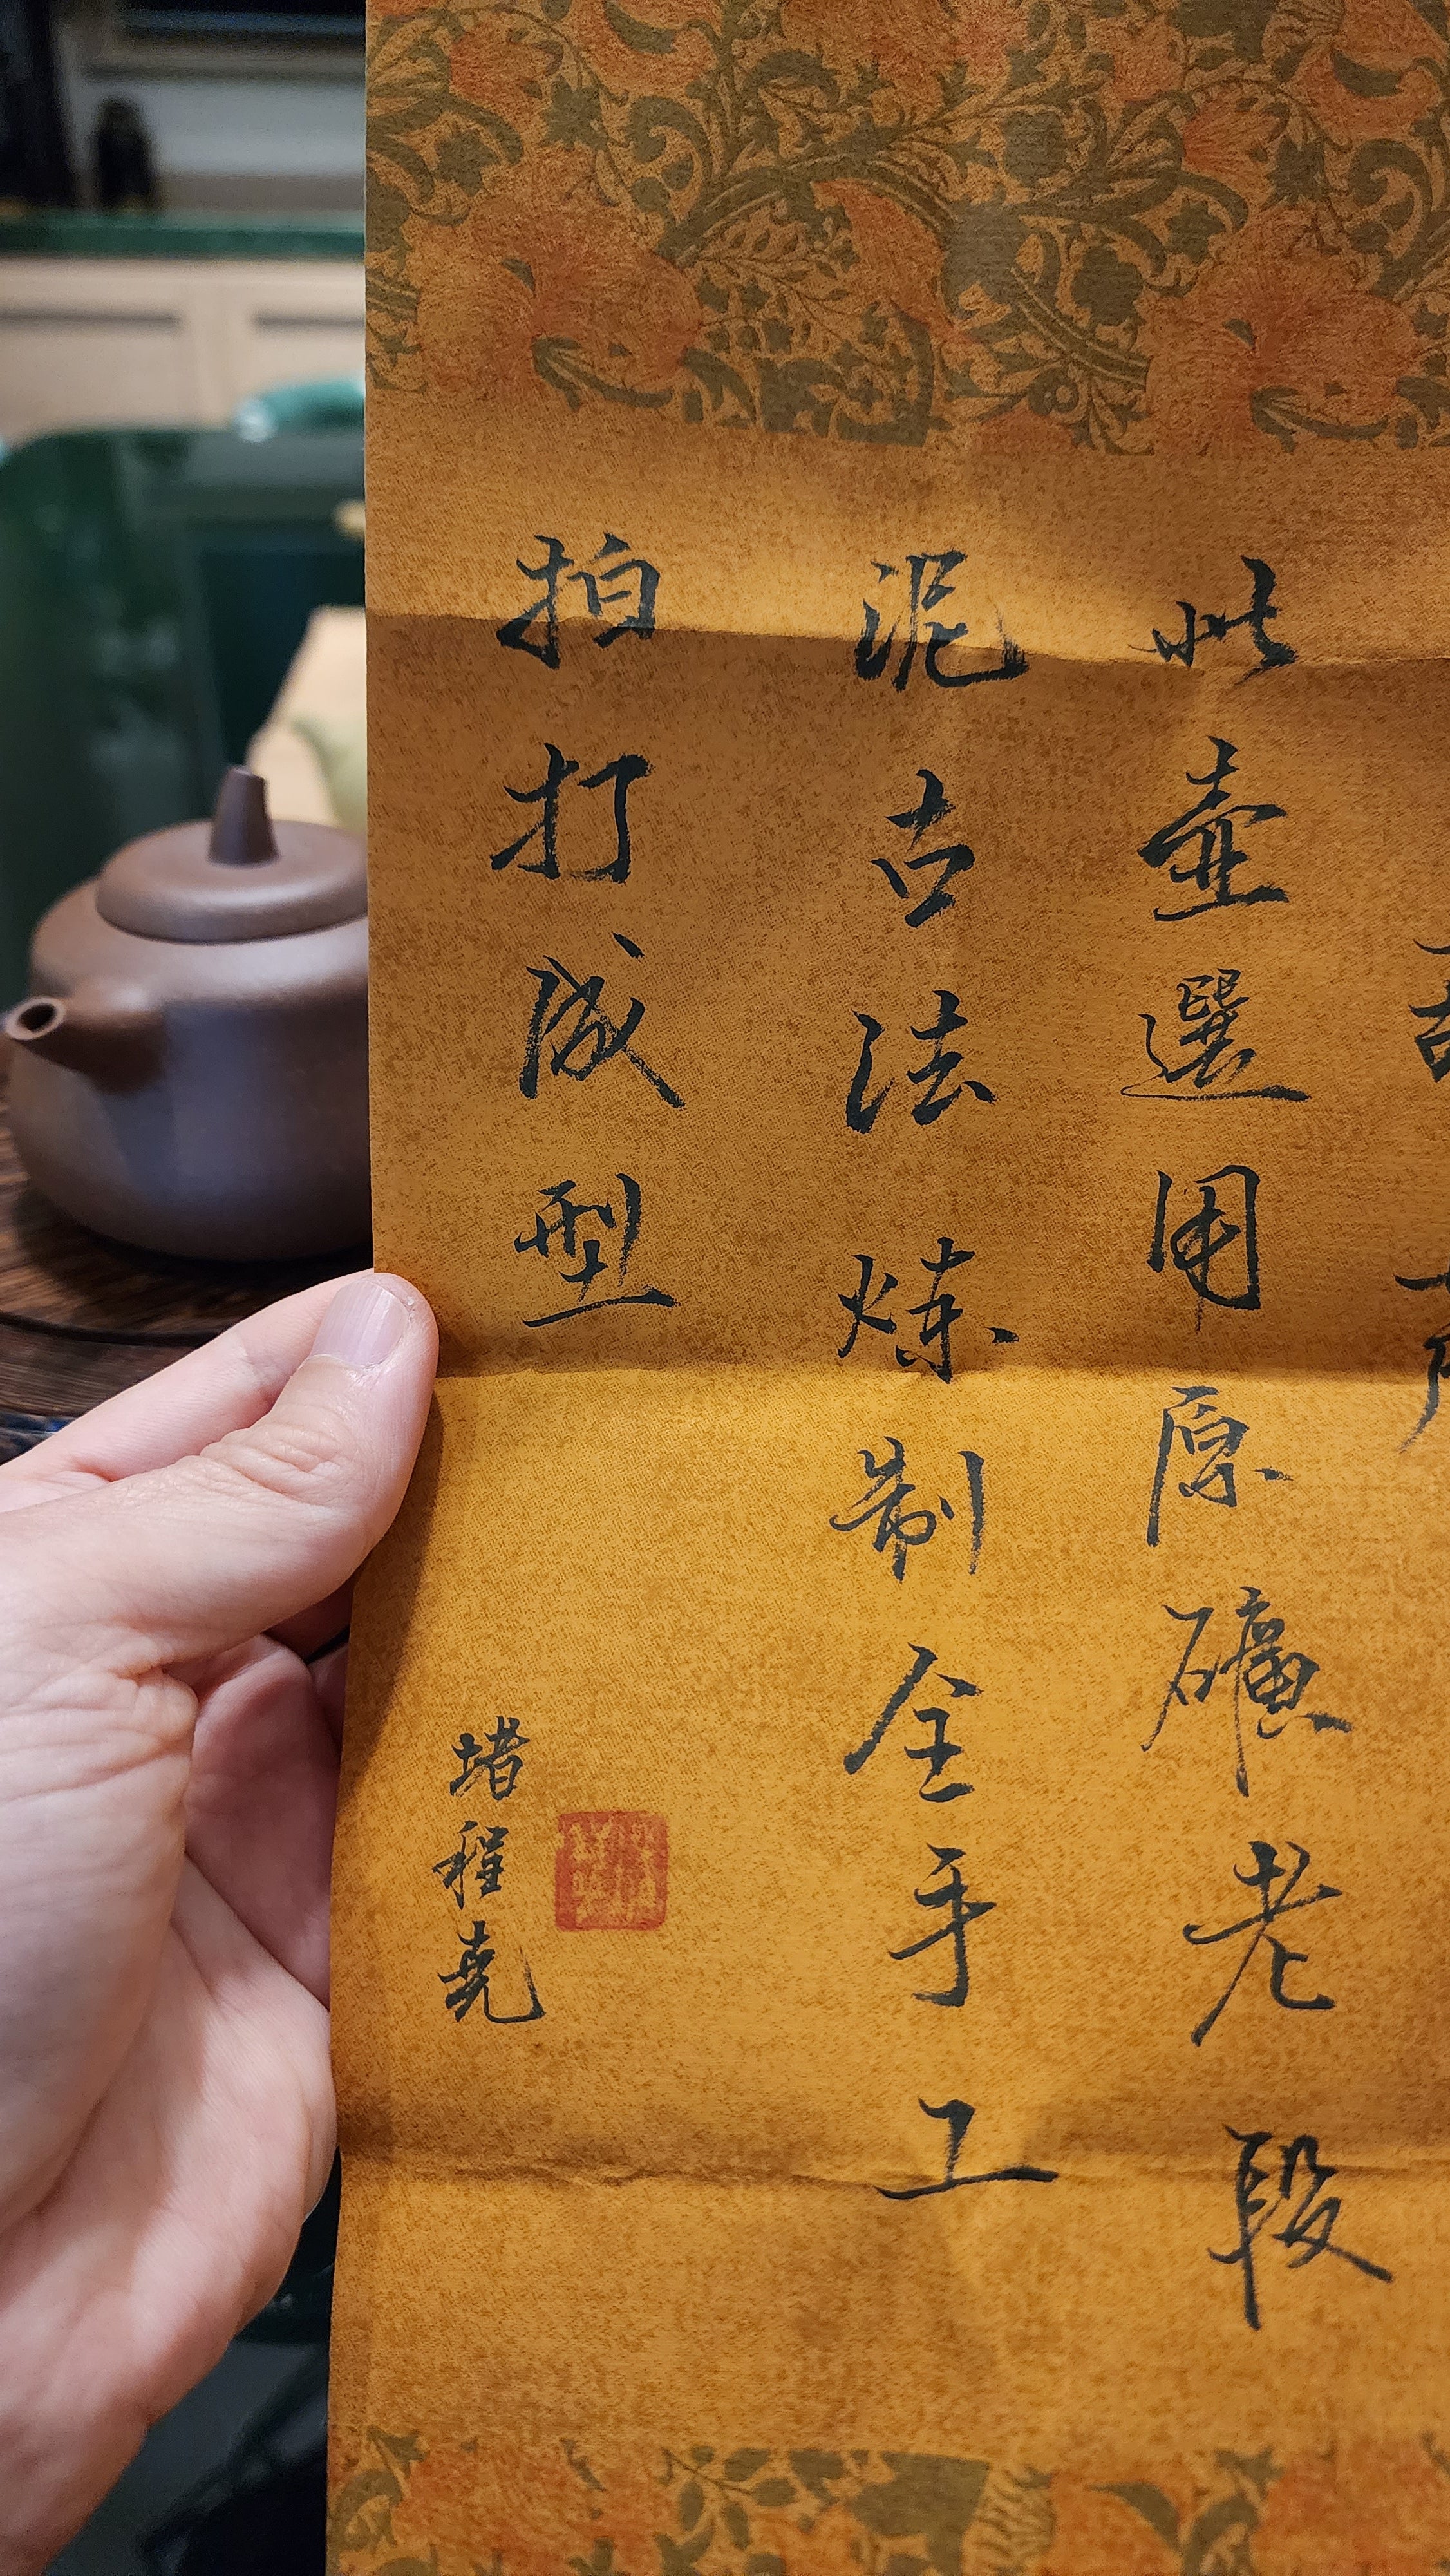 此壺選用原礦老段
泥古法炼制全手工
拍打成型
堵程尭